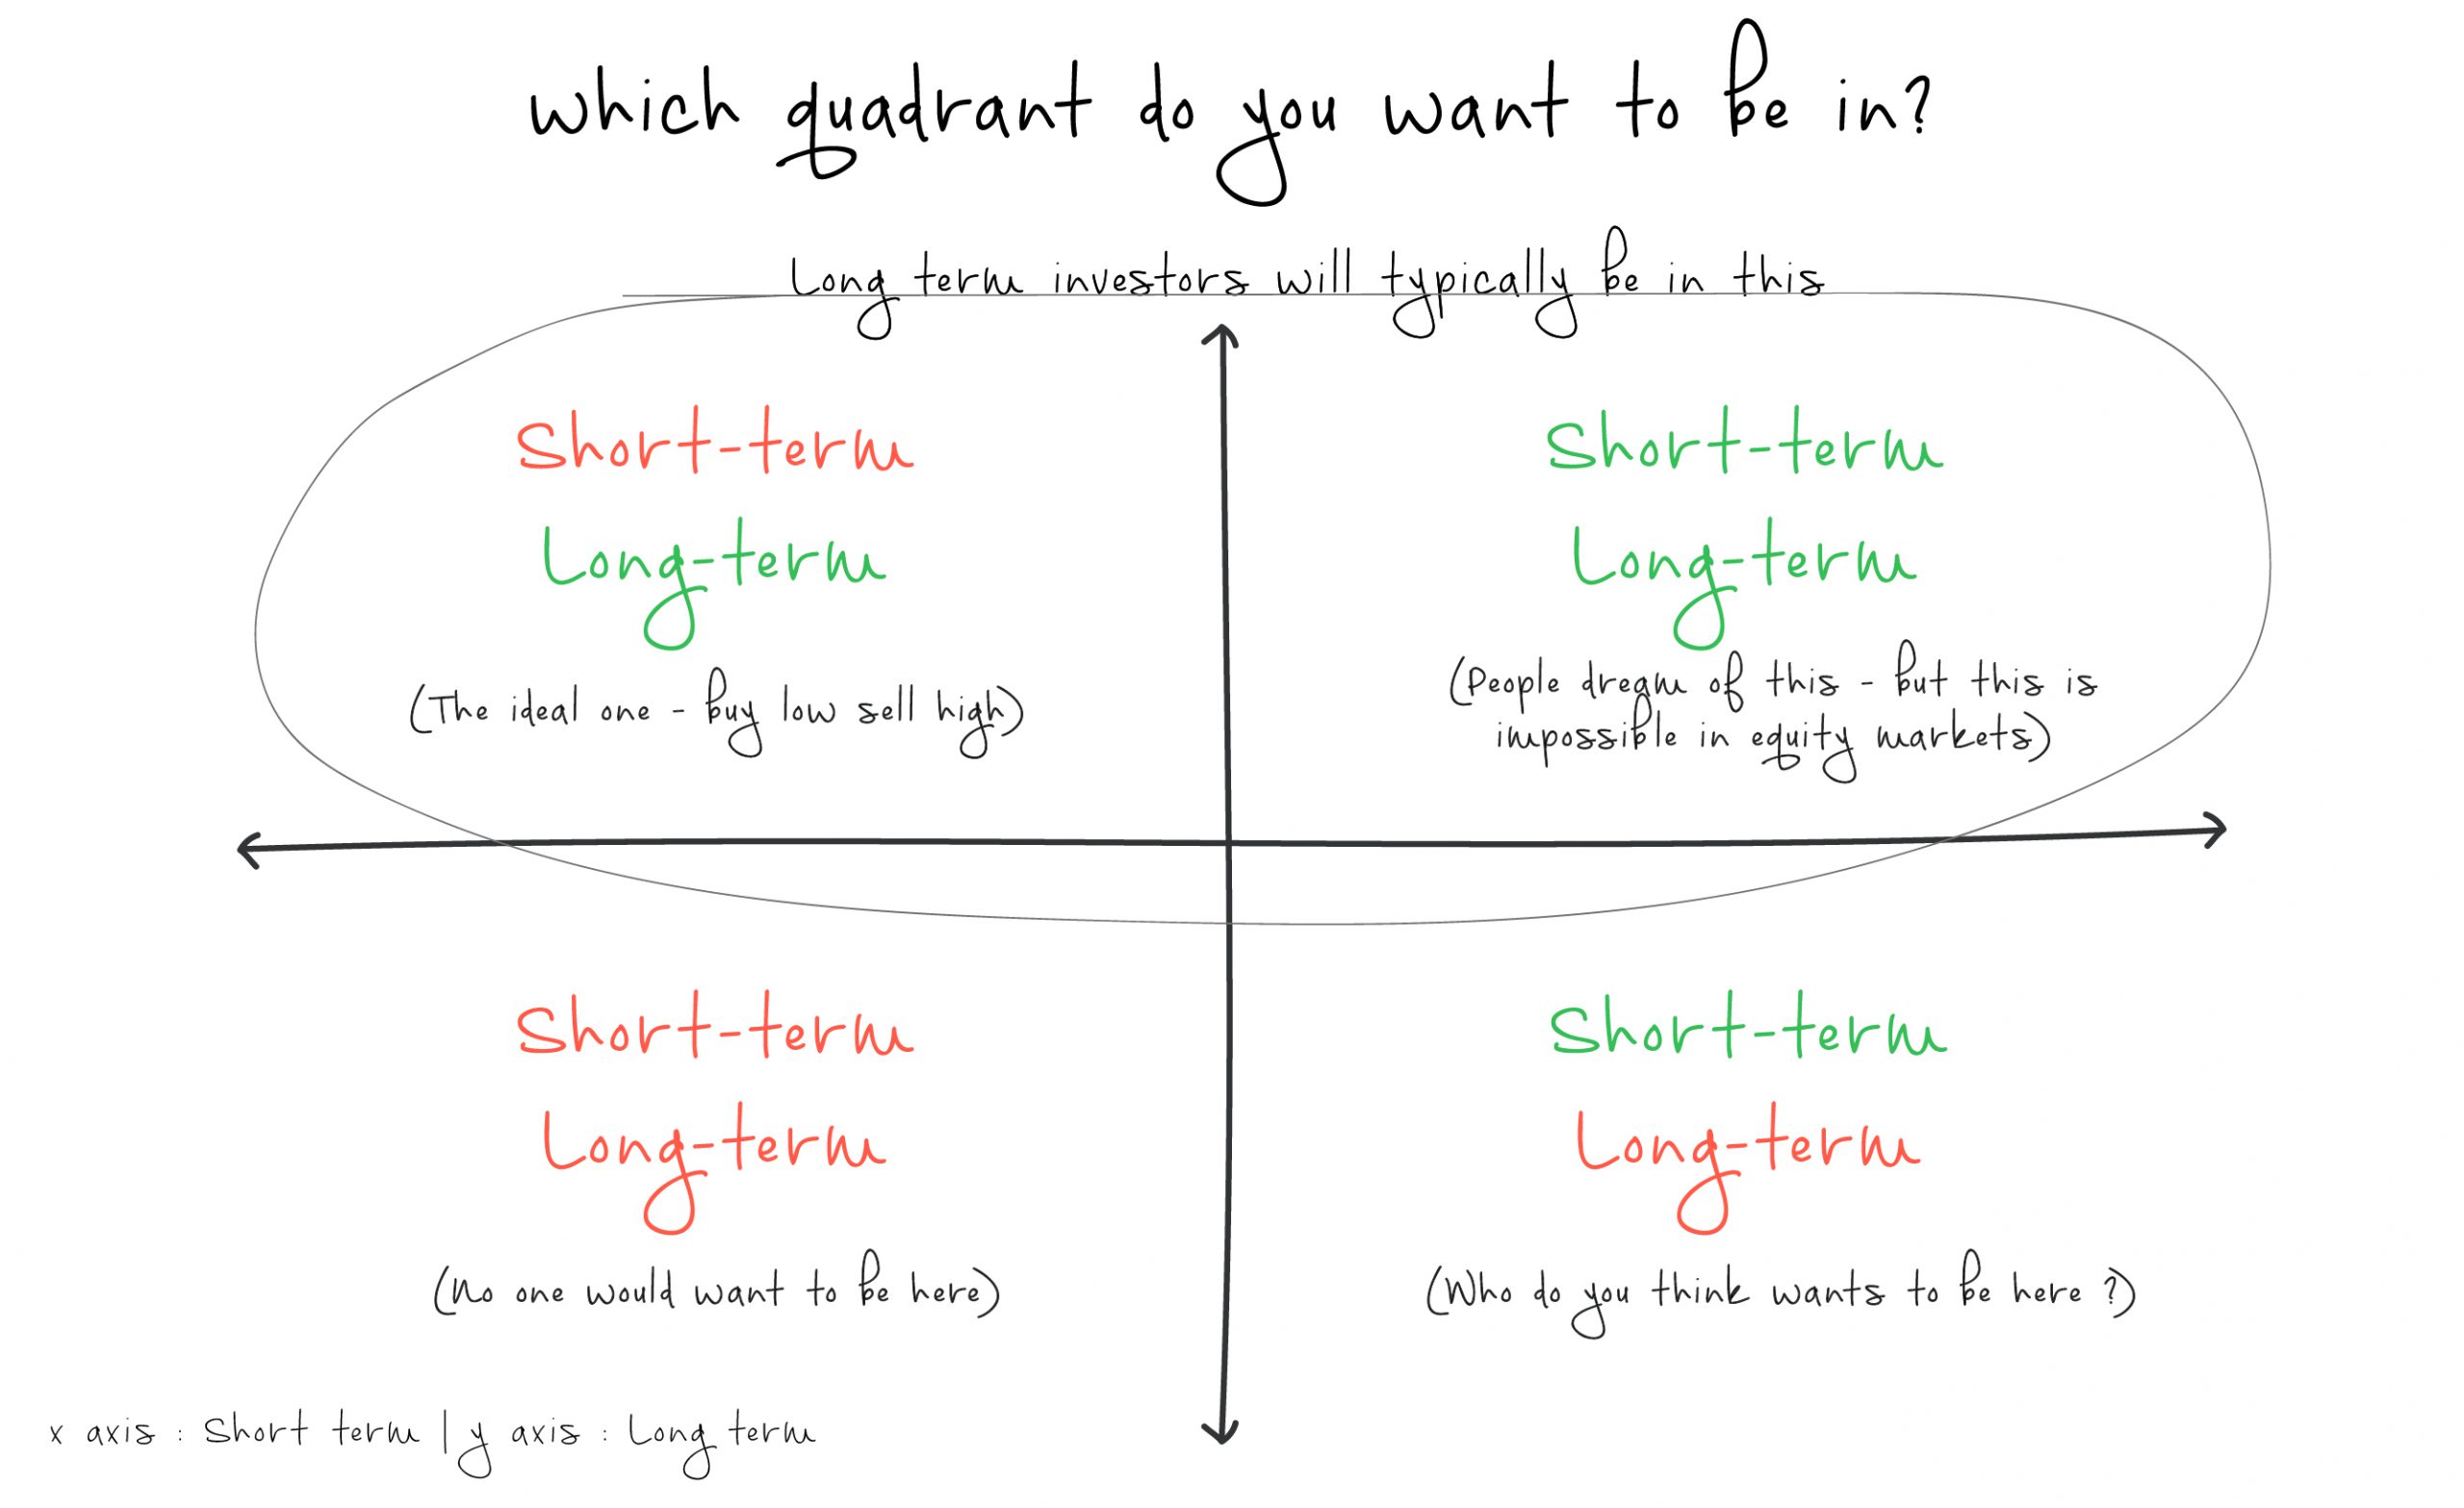 which quadrant do you want to be in?
Long term investors will typically be in this
Short-term
Long-term
(The ideal one - buy low sell high)
Short-term
Long-term
(People dream of this - but this is
impossible in equity markets)
Short-term
Long-term
(No one would want to be here)
Short-term
Long-term
(Who do you think wants to be here ?)
x axis : Short term | y axis : Long term